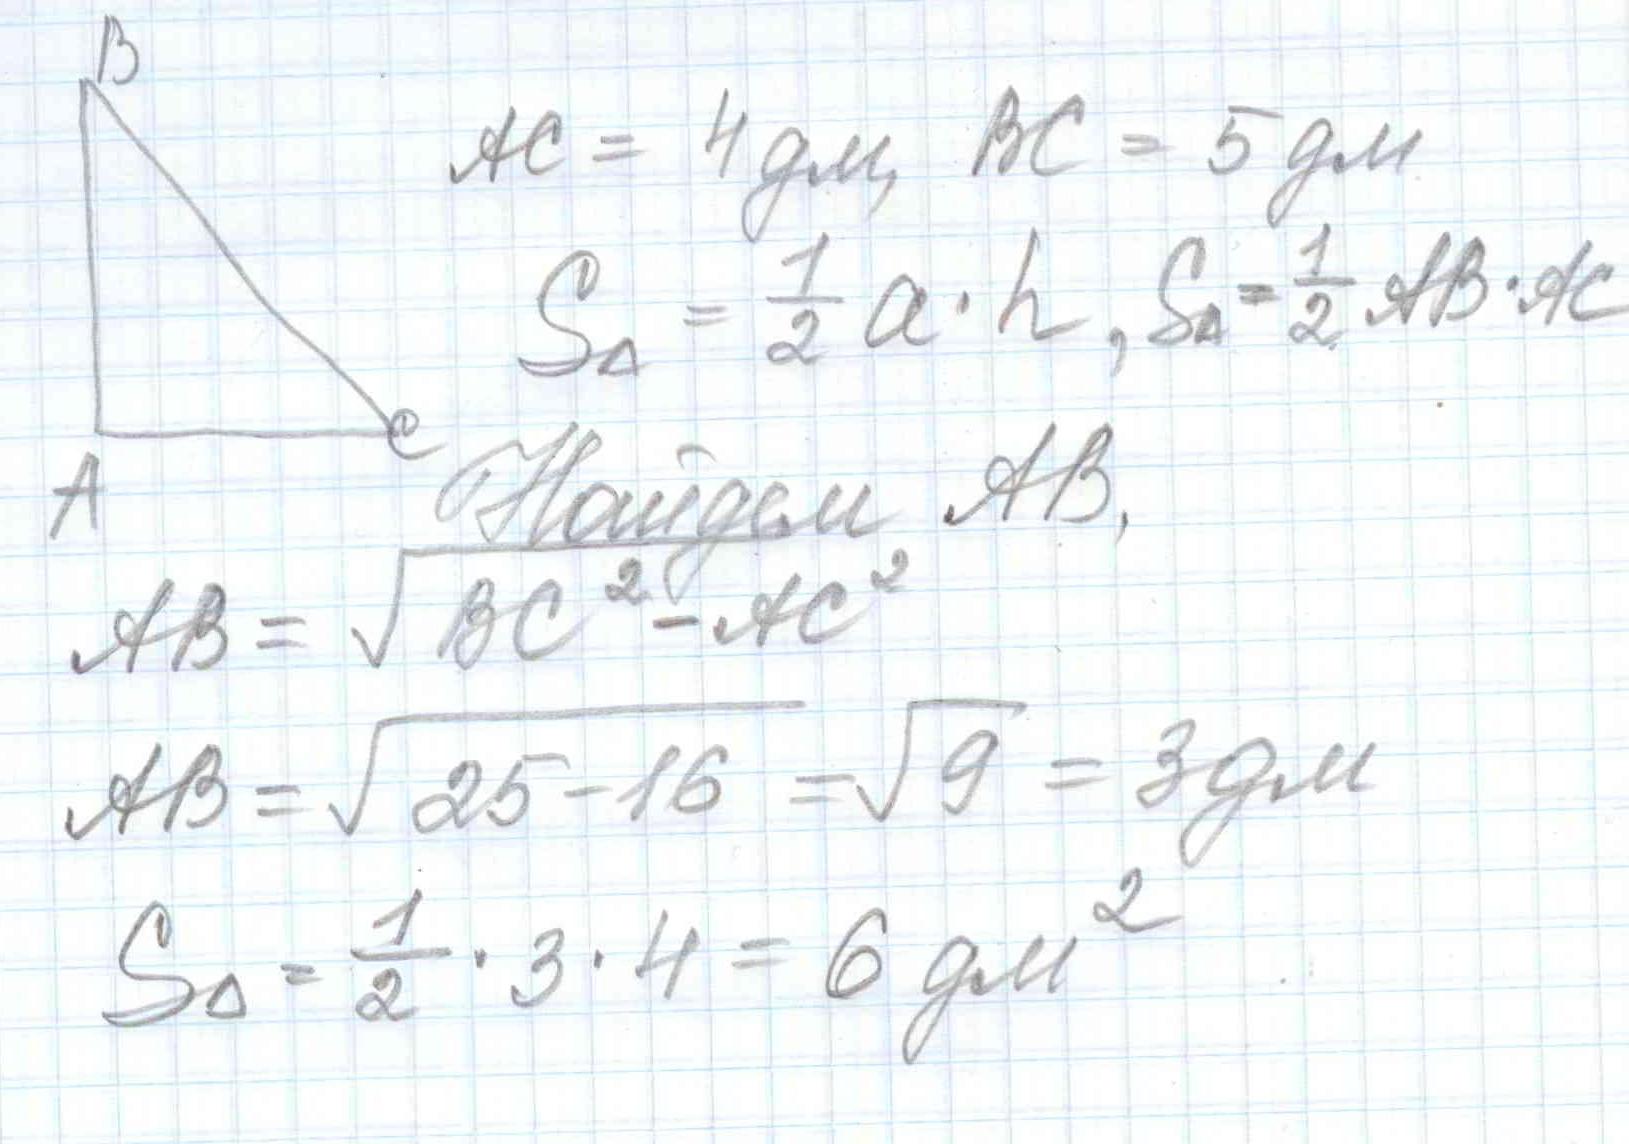 B
AC = 4 дм, BC = 5 дм
S△ = 1/2 a · h, S△ = 1/2 AB · AC
C
A
Найдем AB,
AB = √(BC² - AC²)
AB = √(25 - 16) = √9 = 3 дм
S△ = 1/2 · 3 · 4 = 6 дм²